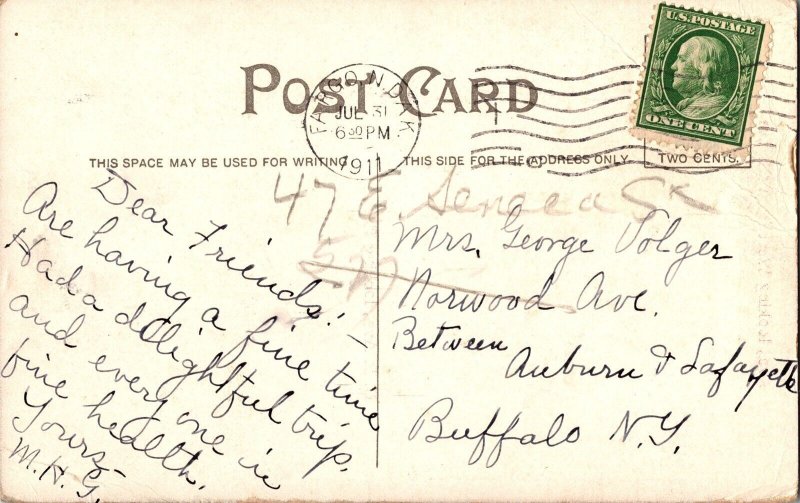 U.S. POSTAGE
ONE CENT
POST CARD
FARGO N DAK
JUL 31
6 30 PM
1911
THIS SPACE MAY BE USED FOR WRITING
THIS SIDE FOR THE ADDRESS ONLY.
TWO CENTS.
Dear Friends:-
Are having a fine time
Had a delightful trip.
and everyone in
fine health.
Yours-
M. H. G.
47 E Seneca St
Mrs. George Volger
Norwood Ave.
Between
Auburn & Lafayette
Buffalo N.Y.